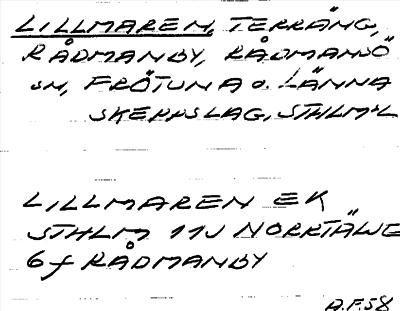 LILLMAREN, TERRÄNG,
RÅDMANBY, RÅDMANSÖ
SN, FRÖTUNA O. LÄNNA
SKEPPSLAG, STHLMSL
LILLMAREN EK
STHLM 11J NORRTÄLJE
6f RÅDMANBY
A.F.58